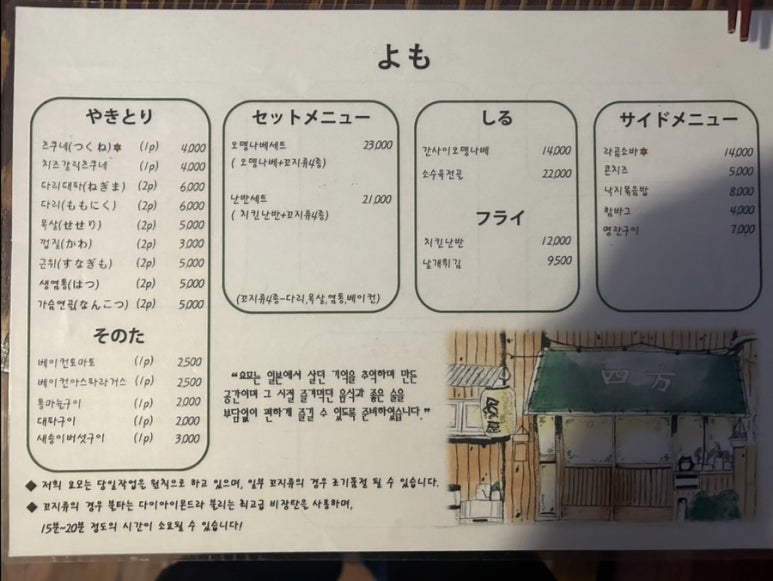 よも
やきとり
츠쿠네(つくね)✽ (1p) 4,000
치즈갈릭츠쿠네 (1p) 4,000
다리대파(ねぎま) (2p) 6,000
다리(ももにく) (2p) 6,000
목살(せせり) (2p) 5,000
껍질(かわ) (2p) 3,000
근위(すなぎも) (2p) 5,000
생염통(はつ) (2p) 5,000
가슴연골(なんこつ) (2p) 5,000
そのた
베이컨토마토 (1p) 2,500
베이컨아스파라거스 (1p) 2,500
통마늘구이 (1p) 2,000
대파구이 (1p) 2,000
새송이버섯구이 (1p) 3,000
セットメニュー
오뎅나베세트 23,000
( 오뎅나베+꼬지류4종)
난반세트 21,000
( 치킨난반+꼬지류4종)
(꼬지류4종-다리,목살,염통,베이컨)
しる
간사이오뎅나베 14,000
소수육전골 22,000
フライ
치킨난반 12,000
날개튀김 9,500
サイドメニュー
라굡소바✽ 14,000
콘치즈 5,000
낙지볶음밥 8,000
함바그 4,000
명란구이 7,000
"요모는 일본에서 살던 기억을 추억하며 만든
공간이며 그 시절 즐겨먹던 음식과 좋은 술을
부담없이 편하게 즐길 수 있도록 준비하였습니다."
四方
◆ 저희 요모는 당일작업을 원칙으로 하고 있으며, 일부 꼬지류의 경우 조기품절 될 수 있습니다.
◆ 꼬지류의 경우 불타는 다이아이몬드라 불리는 최고급 비장탄을 사용하며,
15분~20분 정도의 시간이 소요될 수 있습니다!